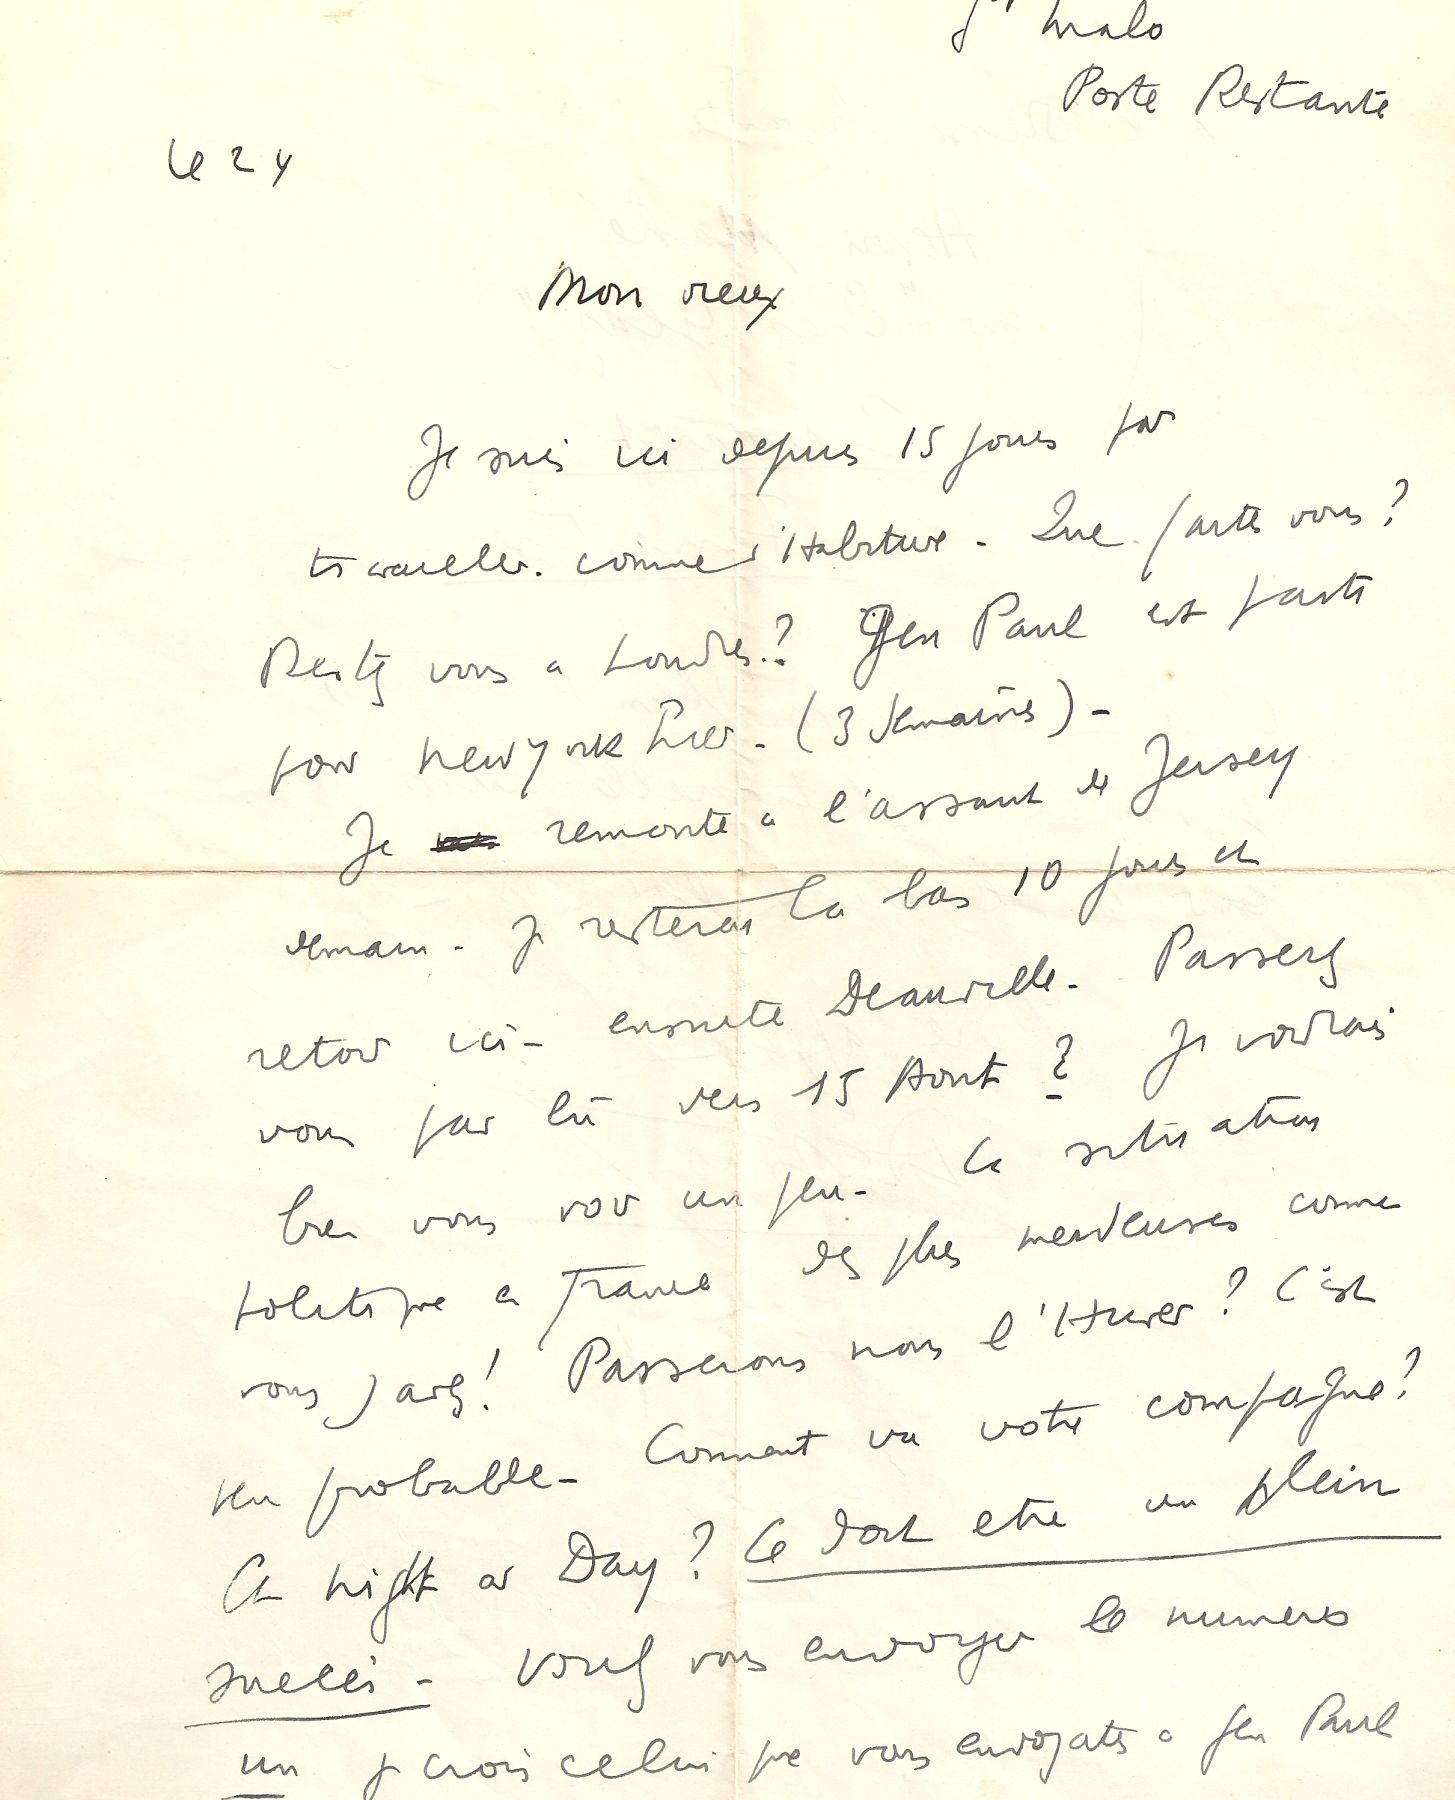 St Malo
Poste Restante
Le 24
Mon vieux
Je suis ici depuis 15 jours pour
travailler. comme d'Habitude - Que faites vous?
Restez vous a Londres? Gen Paul est parti
pour New york hier - (3 semaines) -
Je remonte a l'assaut de Jersey
demain - Je resterai la bas 10 jours et
retour ici - ensuite Deauville - Passerez
vous par là vers 15 Aout ? Je voudrais
bien vous voir un peu - La situation
politique en France des plus merdeuses comme
vous savez! Passerons nous l'Hiver? C'est
peu probable - Comment va votre compagne?
Et Night or Day? Ce doit etre un plein
succès - Voulez vous envoyer le numero
un je crois celui que vous envoyates a Gen Paul